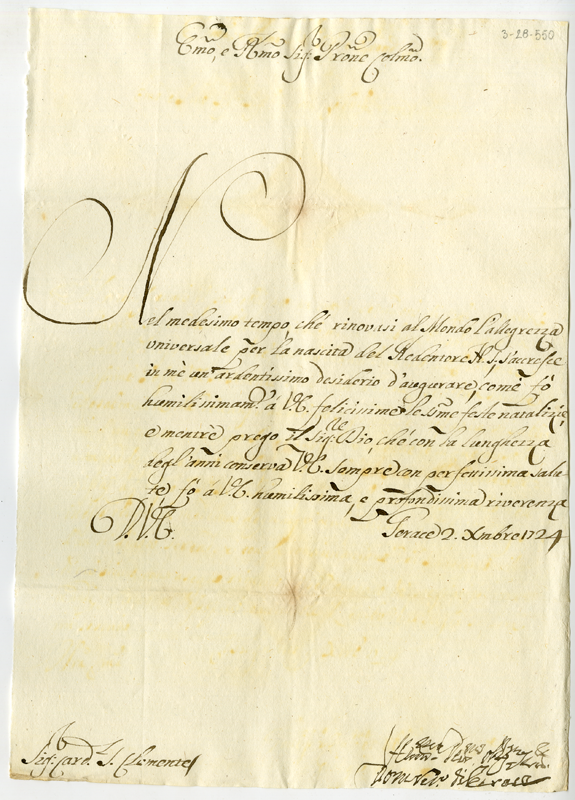 3-28-560
Em̃o, e Rm̃o Sig.r Prõne Colmõ.
Nel medesimo tempo, che rinovasi al Mondo l'allegrezza
universale per la nascita del Redentore N. S., s'accresce
in me un' ardentissimo desiderio d'augurare, come fò
humilissimam.te à V.E. felicissime le sm̃e feste natalizie,
e mentre prego il Sig.re Dio, che con la lunghezza
degl'anni conserva V.E. sempre con perfettissima salu-
te fò à V.E. humilissima, e profondissima riverenza
D.V.E.
Gerace 2. Xmbre 1724
Sig.r Card. S. Clemente
Hum
Vescovo di Gerace